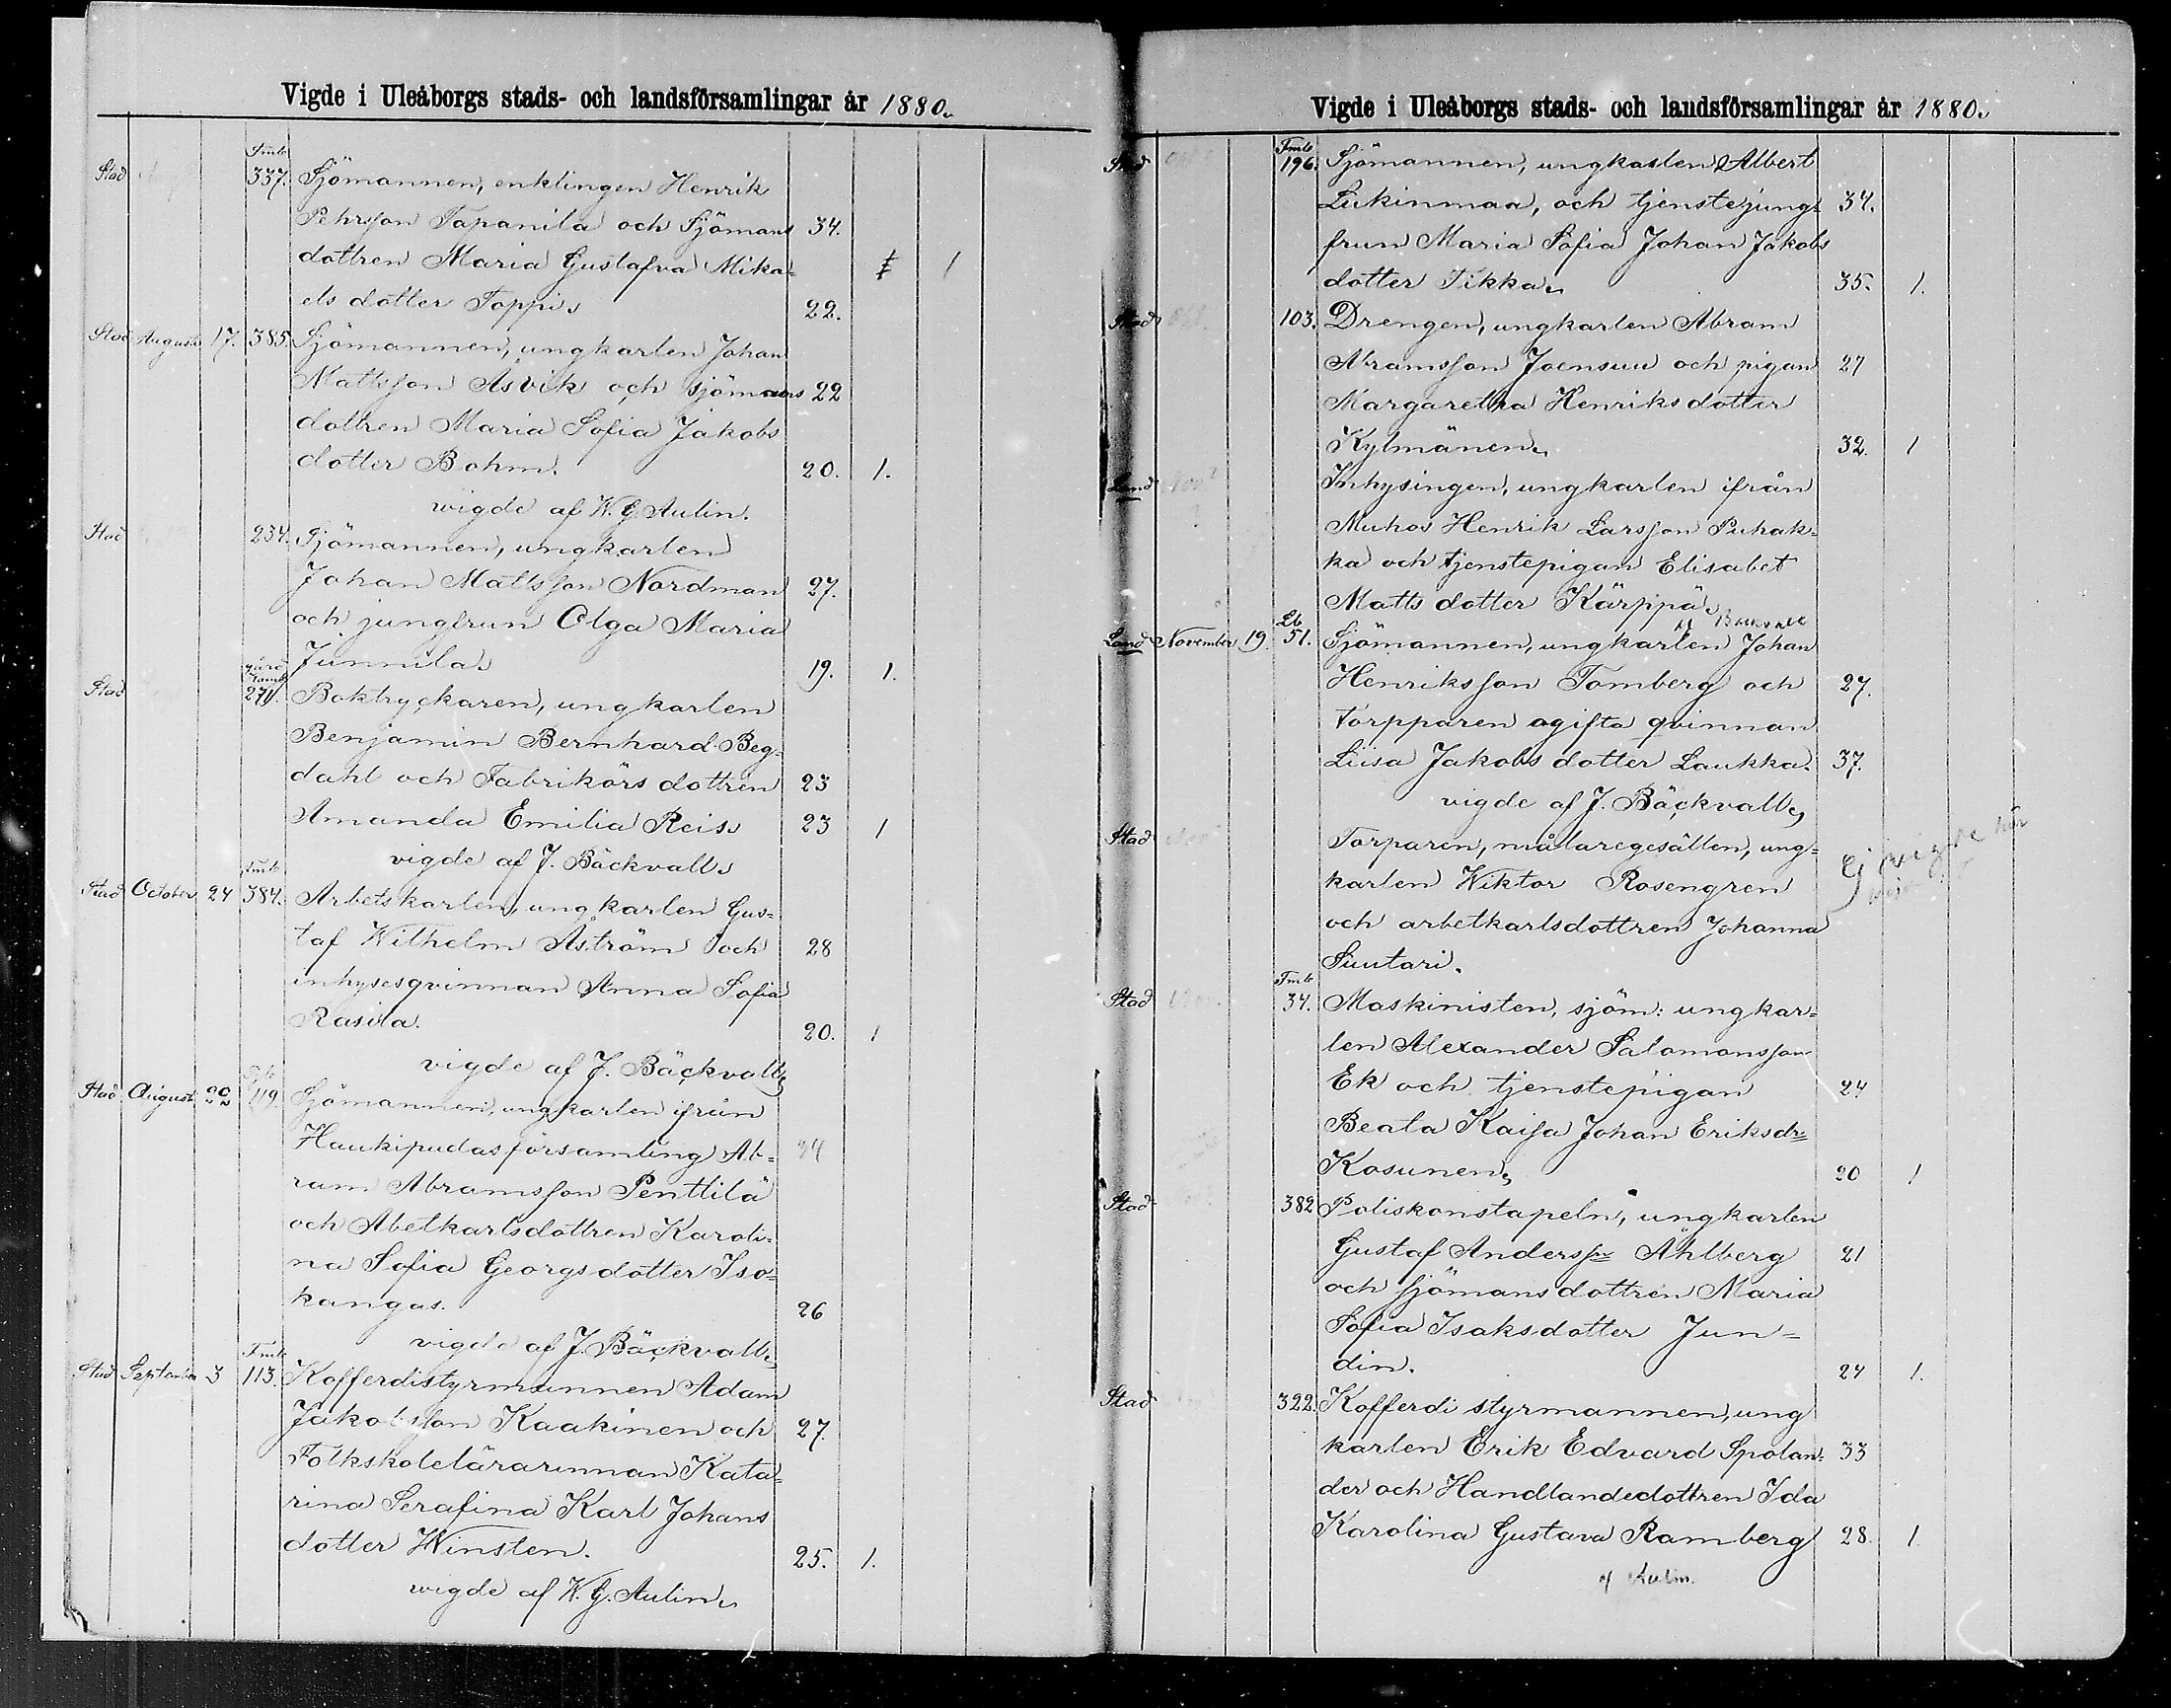 Vigde i Uleåborgs stads- och landsförsamlingar år 1880.
Stad 337. Sjömannen, enklingen Henrik
Pehrsson Tapanila och Sjömans 34.
dottren Maria Gustafva Mika= 1
els dotter Toppi. 22.
Stad Augusti 17. 385. Sjömannen, ungkarlen Johan
Mattsson Åsvik och sjömans 22
dottren Maria Sofia Jakobs
dotter Bohm. 20. 1.
wigde af W. G. Aulin.
Stad 234. Sjömannen, ungkarlen
Johan Mattsson Nordman 27.
och jungfrun Olga Maria
Junnila. 19. 1.
Stad 271. Boktryckaren, ungkarlen
Benjamin Bernhard Beg=
dahl och Fabrikörs dottren 23
Amanda Emilia Reis. 23 1
vigde af J. Bäckvall.
Stad October 24 384. Arbetskarlen, ungkarlen Gus=
taf Wilhelm Åström och 28
inhysesqvinnan Anna Sofia
Rasila. 20. 1
vigde af J. Bäckvall.
Stad Augusti 22 119. Sjömannen, ungkarlen ifrån
Haukipudas församling Ab= 24
ram Abramsson Penttilä
och Abetkarlsdottren Karoli=
na Sofia Georgsdotter Iso=
kangas. 26
vigde af J. Bäckvall.
Fmb
Stad September 3 113. Kofferdistyrmannen Adam
Jakobsson Kaakinen och 27.
Folkskolelärarinnan Kata=
rina Serafina Karl Johans
dotter Winsten. 25. 1.
wigde af W. G. Aulin.
Vigde i Uleåborgs stads- och landsförsamlingar år 1880.
Fmb
Stad Oct. 196. Sjömannen, ungkarlen Albert
Lukinmaa, och tjenstejung= 34.
frun Maria Sofia Johan Jakobs
dotter Tikka. 35. 1.
Stad Oct. 103. Drengen, ungkarlen Abram
Abramsson Joensuu och pigan 27
Margaretha Henriksdotter
Kylmänen. 32. 1
Land Nov. Inhysingen, ungkarlen ifrån
Muhos Henrik Larsson Puhak=
ka och tjenstepigan Elisabet
Matts dotter Kärppä.
Lb
Land November 19. 51. Sjömannen, ungkarlen Johan
Henriksson Tomberg och 27.
torpparen ogifta qvinnan
Liisa Jakobs dotter Laukka. 37.
vigde af J. Bäckvall.
Stad Nov. Torparen, målaregesällen, ung=
karlen Wiktor Rosengren Ej wigde här
och arbetkarlsdottren Johanna
Suutari.
Fmb
Stad Nov. 34. Maskinisten, sjöm: ungkar=
len Alexander Salomonsson
Ek och tjenstepigan 24
Beata Kaisa Johan Eriksdr
Kosunen. 20 1
Stad 382 Poliskonstapeln, ungkarlen
Gustaf Anderss Åhlberg 21
och sjömansdottren Maria
Sofia Isaksdotter Jun=
din. 24 1.
Stad 322. Kofferdi styrmannen, ung
karlen Erik Edvard Spolan= 33
der och Handlandedottren Ida
Karolina Gustava Ramberg 28. 1
af Aulin.